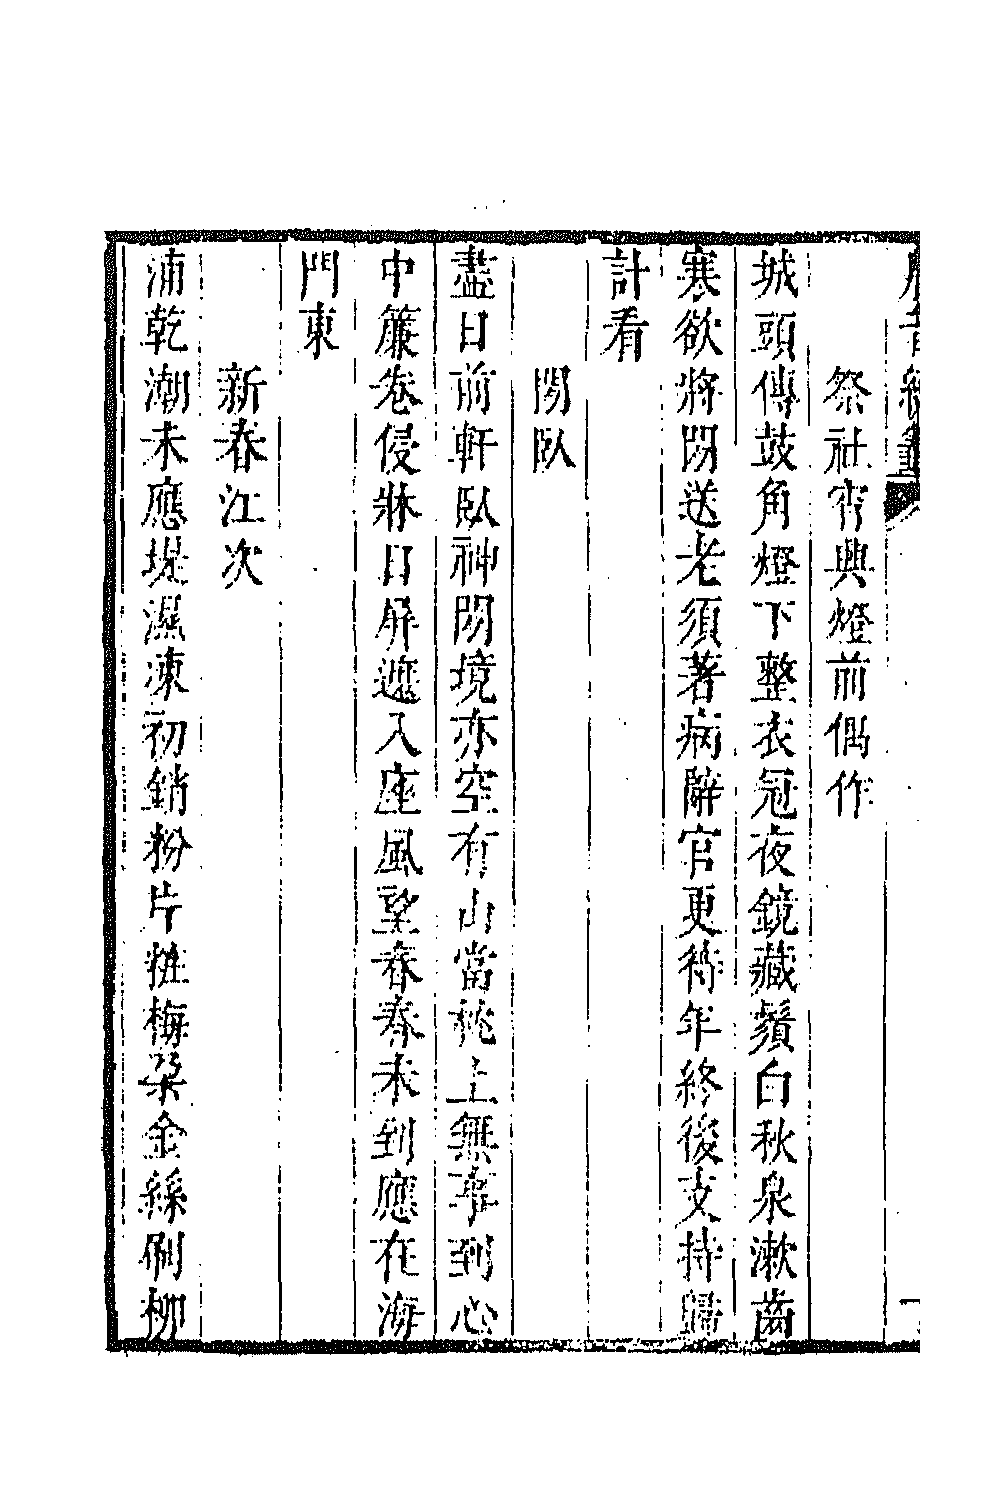 祭社宵興燈前偶作
城頭傳鼓角燈下整衣冠夜鏡藏鬚白秋泉漱齒
寒欲將閑送老須著病辭官更待年終後支持歸
計看
閑臥
盡日前軒臥神閑境亦空有山當枕上無事到心
中簾卷侵牀日屏遮入座風望春春未到應在海
門東
新春江次
浦乾潮未應堤濕凍初銷粉片粧梅朶金絲刷柳